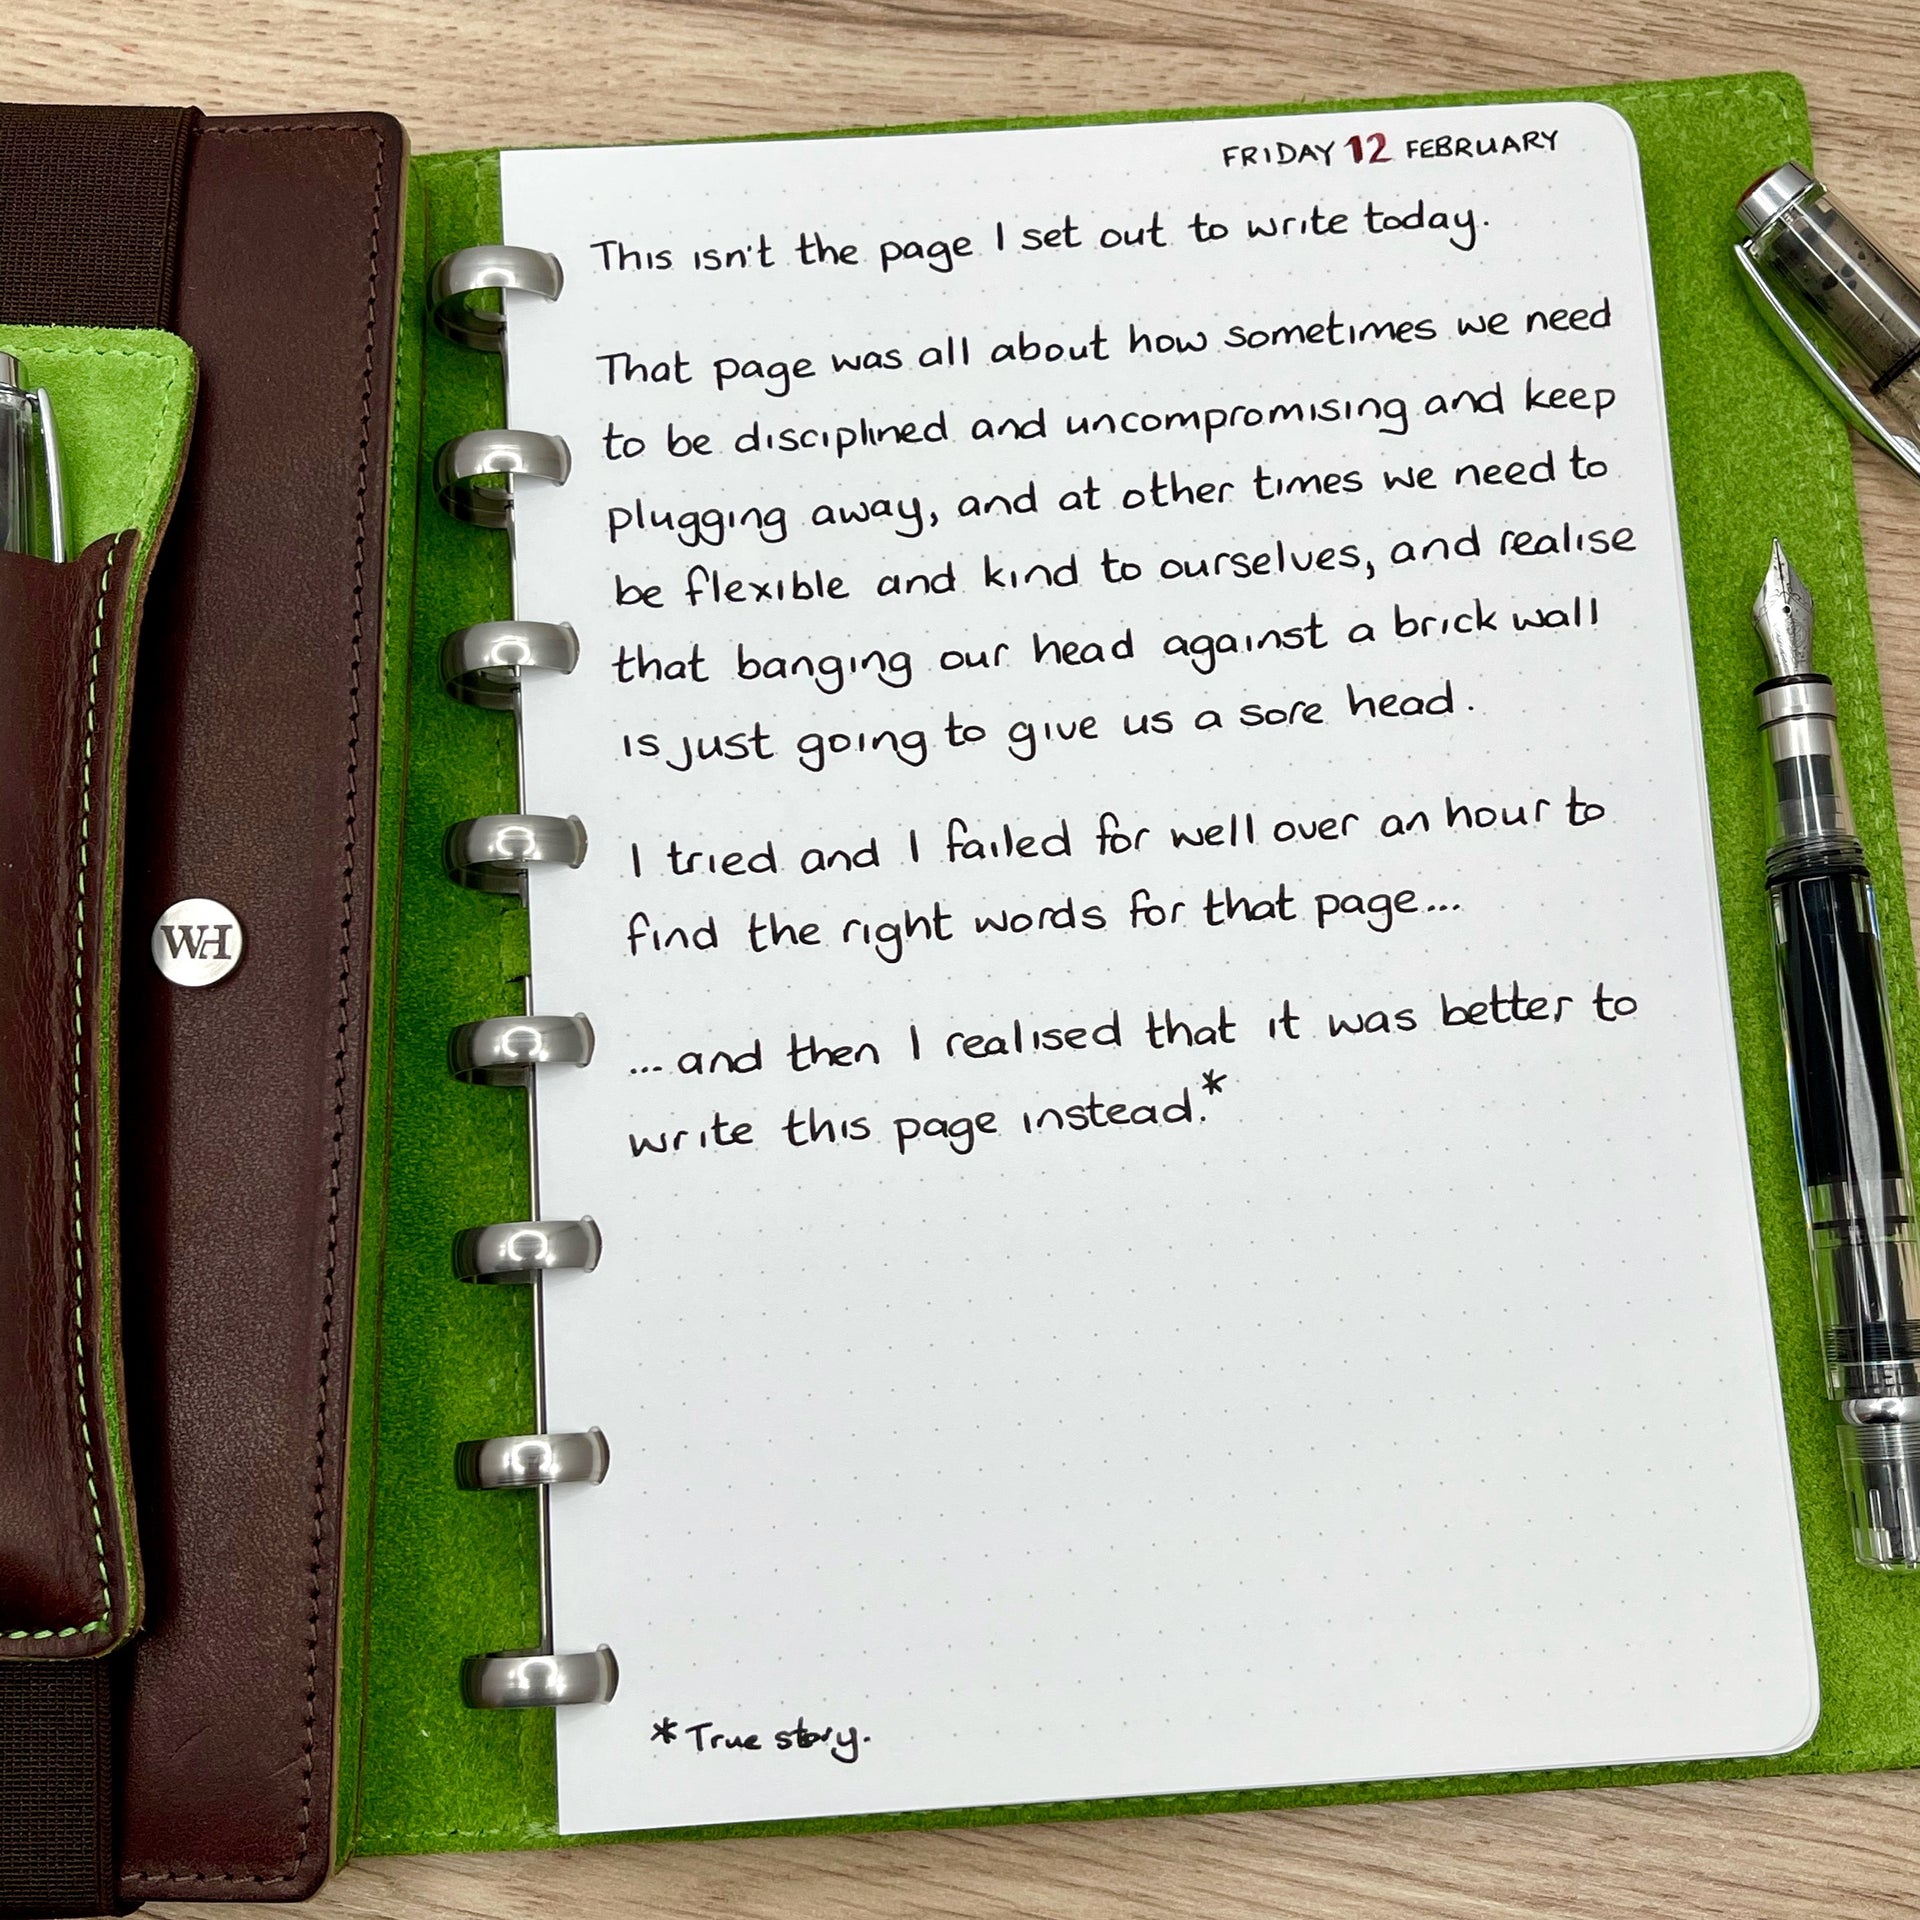 FRIDAY 12 FEBRUARY
This isn't the page I set out to write today.
That page was all about how sometimes we need
to be disciplined and uncompromising and keep
plugging away, and at other times we need to
be flexible and kind to ourselves, and realise
that banging our head against a brick wall
is just going to give us a sore head.
I tried and I failed for well over an hour to
find the right words for that page...
...and then I realised that it was better to
write this page instead.*
*True story.
WH